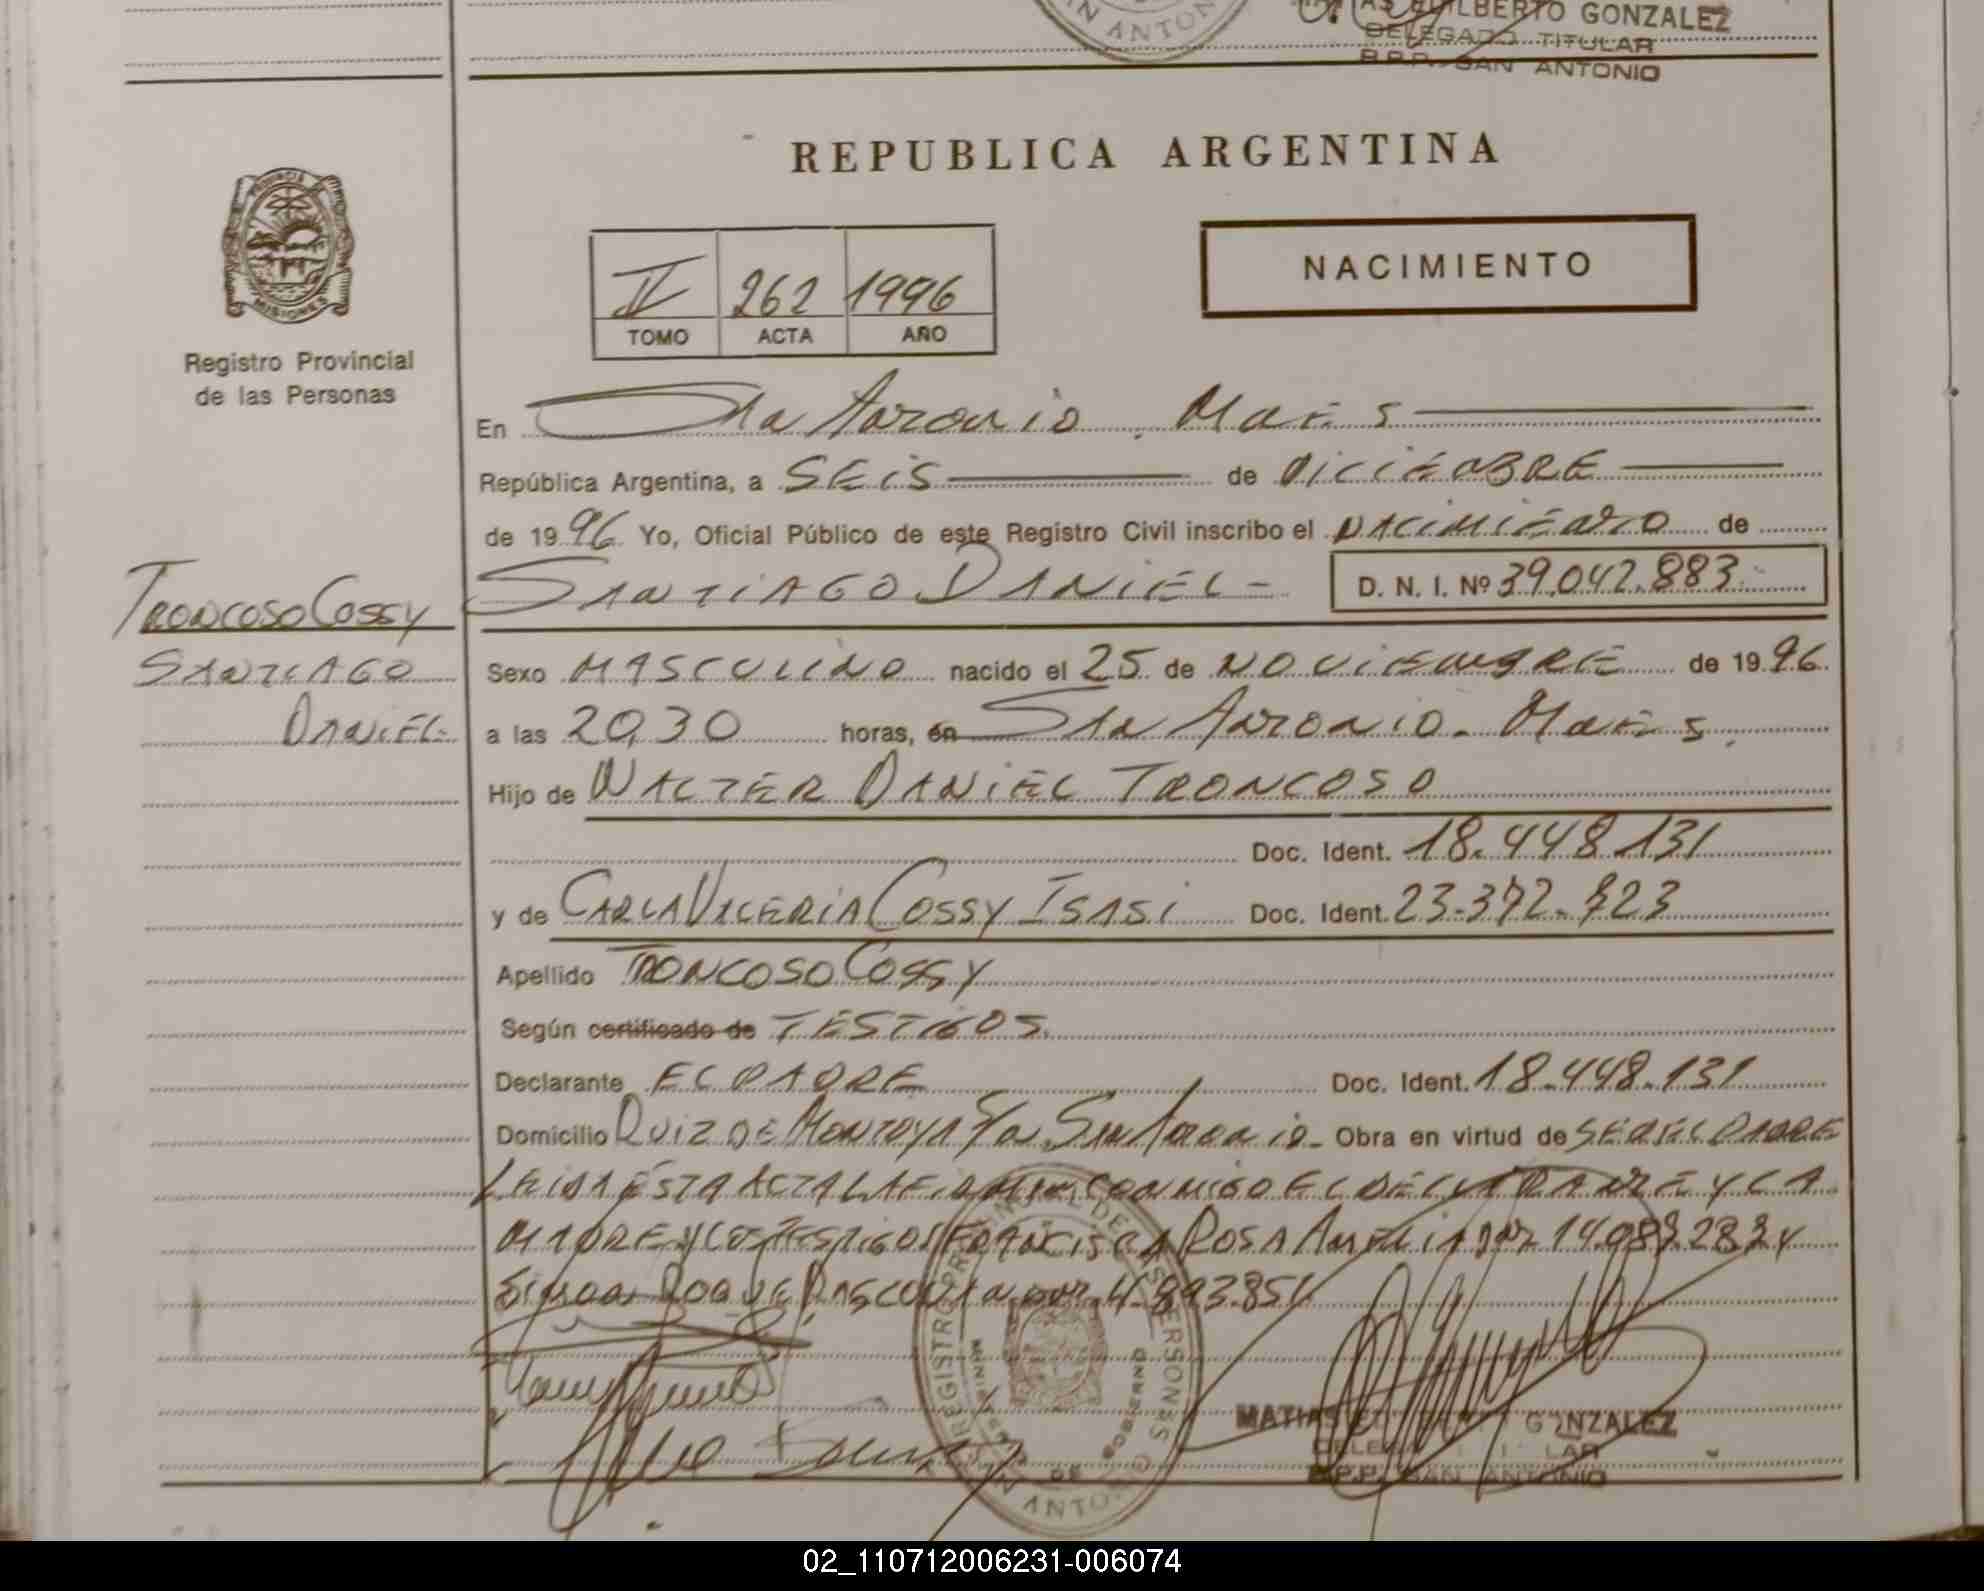 GILBERTO GONZALEZ
DELEGADO TITULAR
R.P.P. SAN ANTONIO
REPUBLICA ARGENTINA
PROVINCIA
MISIONES
Registro Provincial
de las Personas
II 262 1996
TOMO ACTA AÑO
NACIMIENTO
En San Antonio. Mnes
República Argentina, a SEIS de DICIEMBRE
de 1996 Yo, Oficial Público de este Registro Civil inscribo el NACIMIENTO de
SANTIAGO DANIEL D. N. I. Nº 39.042.883
TRONCOSO COSSY
SANTIAGO
DANIEL
Sexo MASCULINO nacido el 25 de NOVIEMBRE de 1996.
a las 20,30 horas, en San Antonio. Mnes.
Hijo de WALTER DANIEL TRONCOSO
Doc. Ident. 18.448.131
y de CARLA VALERIA COSSY ISASI Doc. Ident. 23.372.723
Apellido TRONCOSO COSSY
Según certificado de TESTIGOS.
Declarante EL PADRE Doc. Ident. 18.448.131
Domicilio RUIZ DE MONTOYA S/n San Antonio. Obra en virtud de SER EL PADRE
LEIDA ESTA ACTA LA FIRMAN CONMIGO EL DECLARANTE Y LA
MADRE Y LOS TESTIGOS FRANCISCA ROSA AMELIA 14.083.283 Y
ROQUE 4.893.851
REGISTRO PROVINCIAL DE LAS PERSONAS
MINISTERIO DE GOBIERNO
SAN ANTONIO
MATIAS GONZALEZ
DELEGADO TITULAR
R.P.P. SAN ANTONIO
02_110712006231-006074